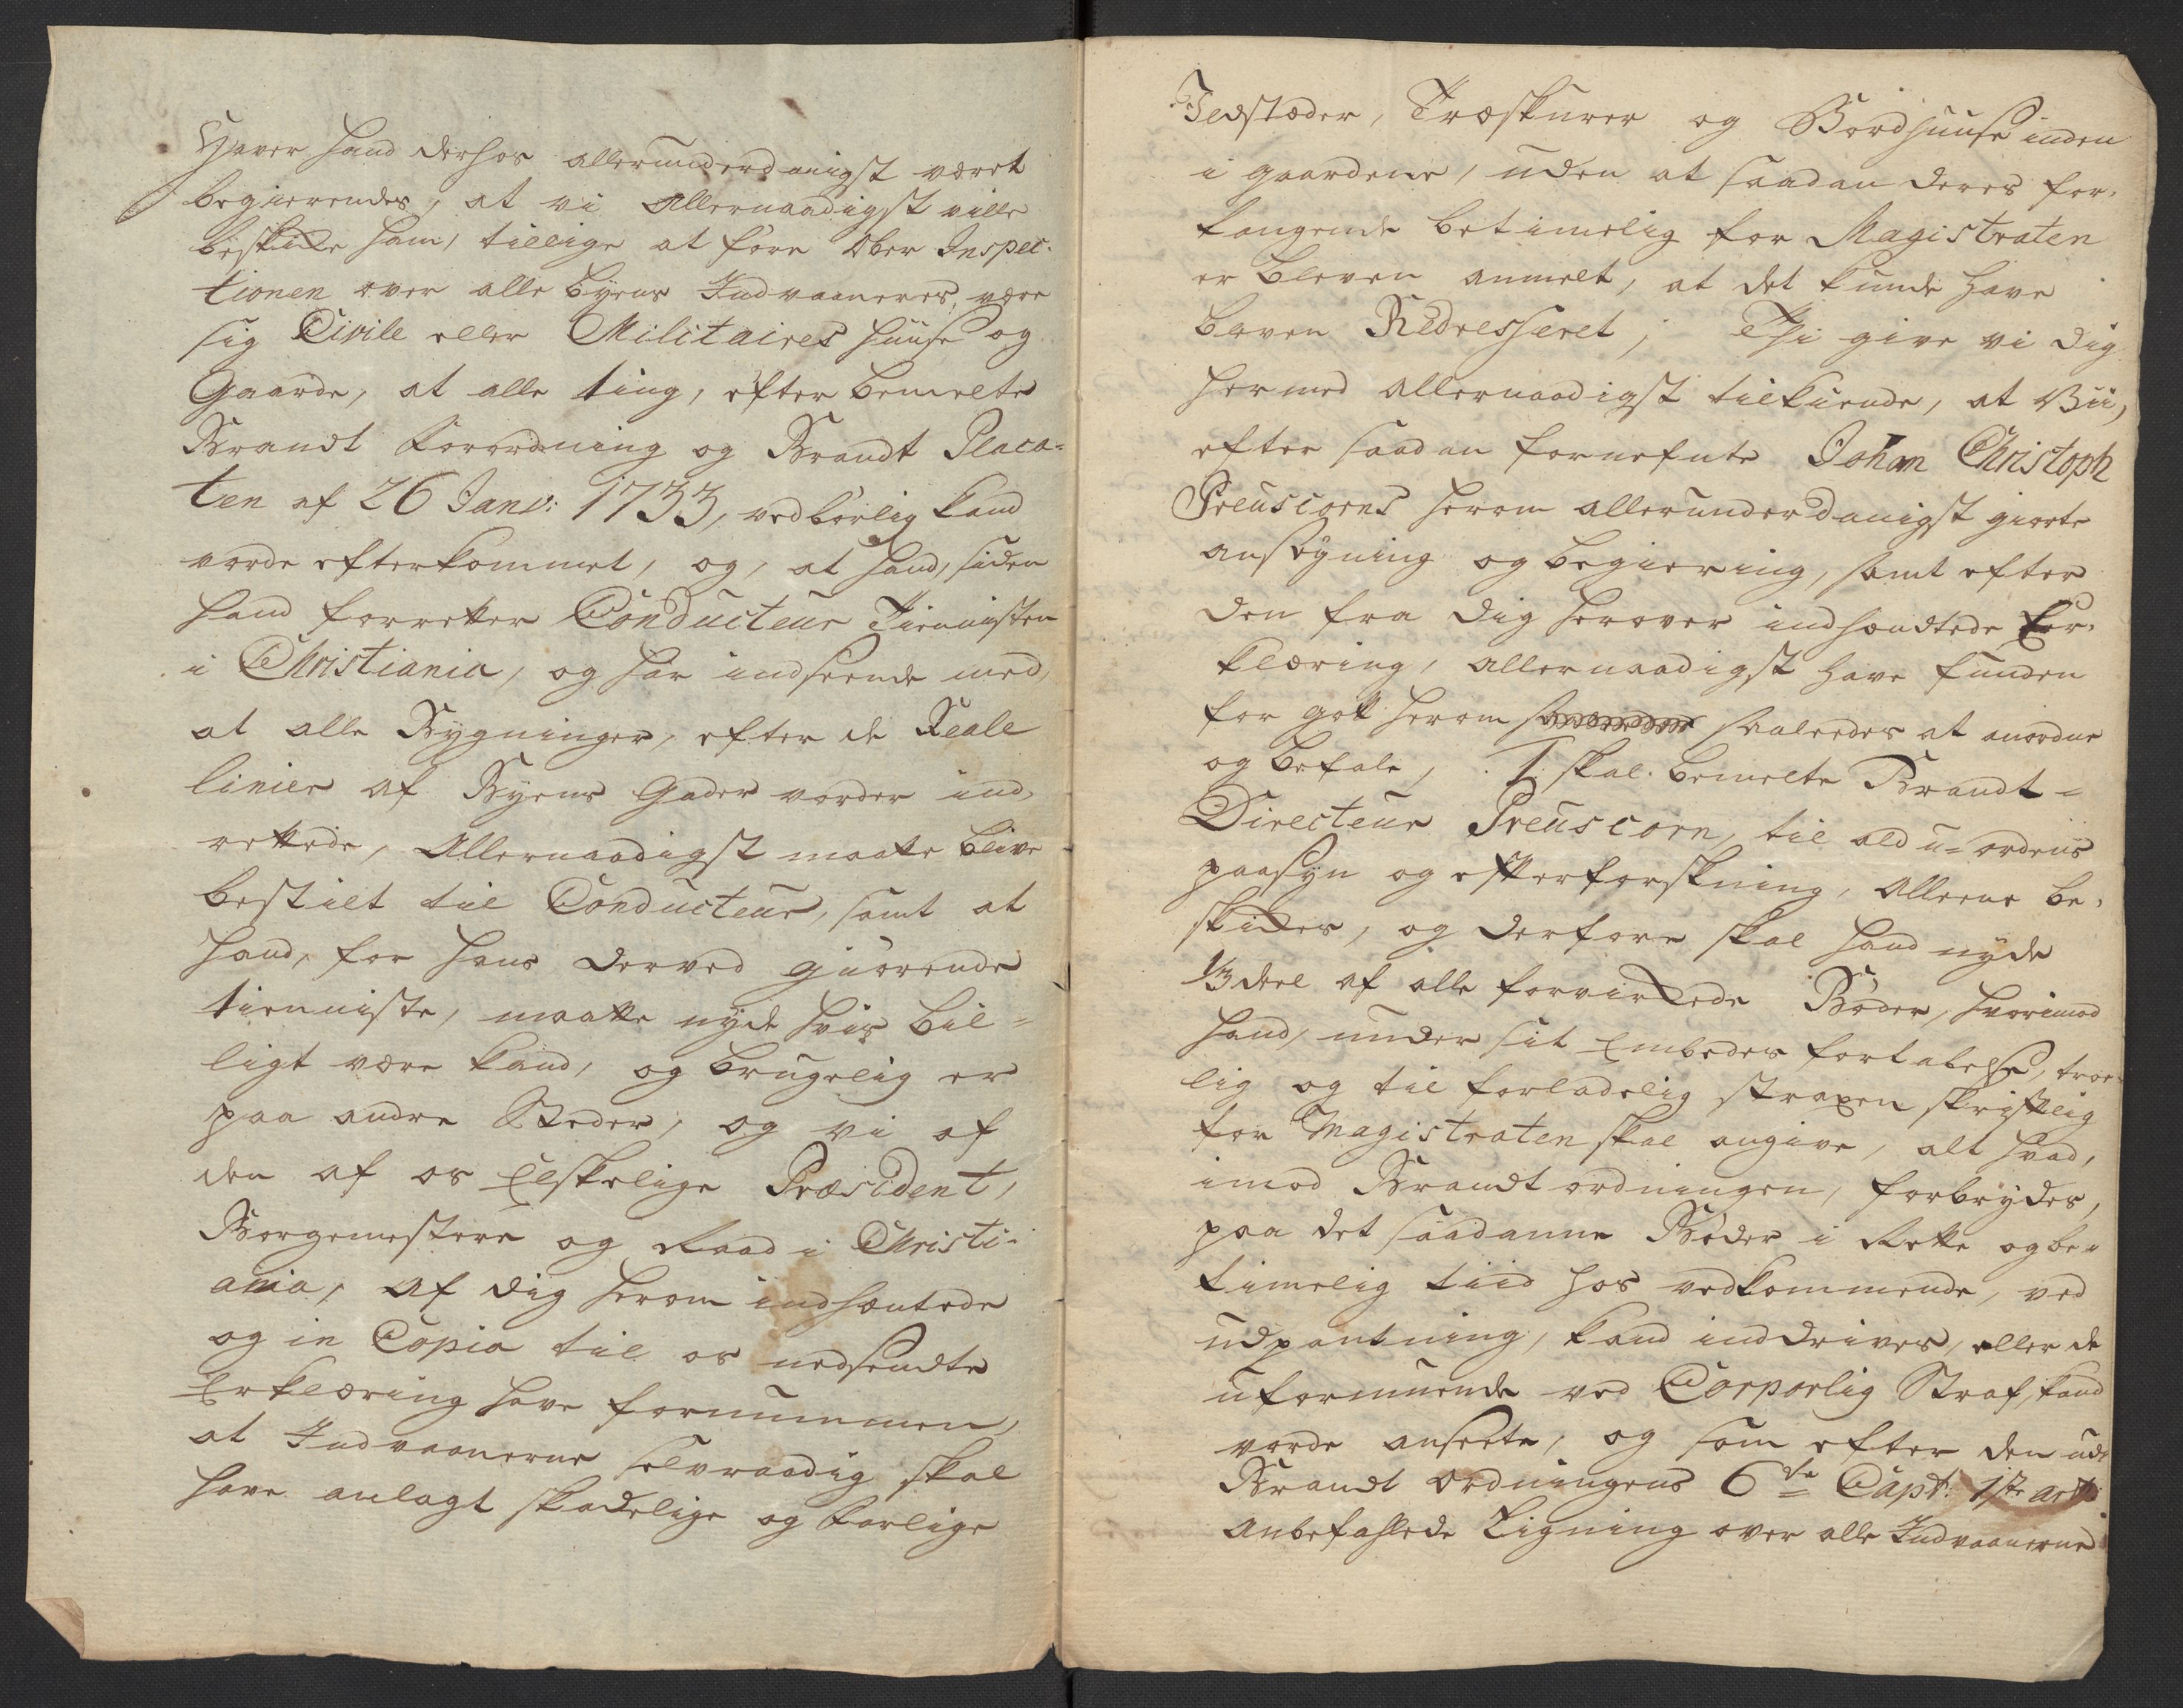 Haver hand derhos allerunderdanigst været
begierendes, at vi Allernaadigst ville
beskikke ham, tillige at føre Ober Inspec-
tionen over alle Byens Indvaaneres, være
sig Civile eller Militaires Huuse og
Gaarde, at alle ting, efter bemelte
Brandt Forordning og Brandt Placa-
ten af 26 Janv: 1733, vedbørlig kand
vorde efterkommet, og, at hand, siden
hand forretter Conducteur Tienisten
i Christiania, og har indseende med,
at alle Bygninger, efter de Reale
linier af Byens Gader vorder ind-
rettede, Allernaadigst maatte blive
bestilt til Conducteur, samt at
hand, for hans derved giørende
tienniste, maatte nyde hvis bil-
ligt være kand, og brugelig er
paa andre Steder; og vi af
den af os Elskelige Præsident,
Borgemestere og Raad i Christi-
ania, af dig herom indhæntede
og in Copia til os nedsendte
Erklæring have fornummen,
at Indvaanerne selvraadig skal
have anlagt skadelige og farlige
Ildstæder, Træskurer og Bordhuuse inden
i gaardene, uden at saadan deres for-
tangende betimelig for Magistraten
er bleven anmelt, at det kunde have
bleven Redresseret; Thi give vi dig
hermed allernaadigst tilkiende, at Vii,
efter saadan fornefnte Johan Christoph
Preuscorns herom allerunderdanigst giorte
ansøgning og begiering, samt efter
den fra dig herover indhændtede Er-
klæring, allernaadigst have funden
for got herom saaledes at anordne
og befale, 1. skal bemelte Brandt-
Directeur Preuscorn, til ald u-ordens
paasyn og efterforskning, Alleene be-
skikkes, og derfore skal hand nyde
1/3 deel af alle forvirkede Bøder, hvorimod
hand, under sit Embedes fortabelse, troe-
lig og tilforladelig straxen skriftlig
for Magistraten skal angive, alt hvad,
imod Brandt ordningen, forbrydes,
paa det saadanne Bøder i Rette og be-
timelig tiid hos vedkommende, ved
udpantning, kand inddrives, eller de
uformuende ved Corporlig Straf, kand
vorde anseete, og som efter den udi
Brandt Ordningens 6te Capt: 1ste art:
Anbefahlede Ligning over alle Indvaanerne